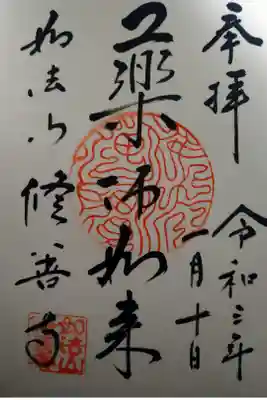 奉拝
令和三年
一月十日
薬師如来
如法山 修善寺